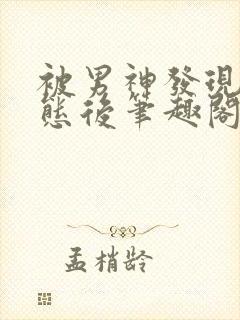 被男神發現
態後筆趣閣
孟梢齡